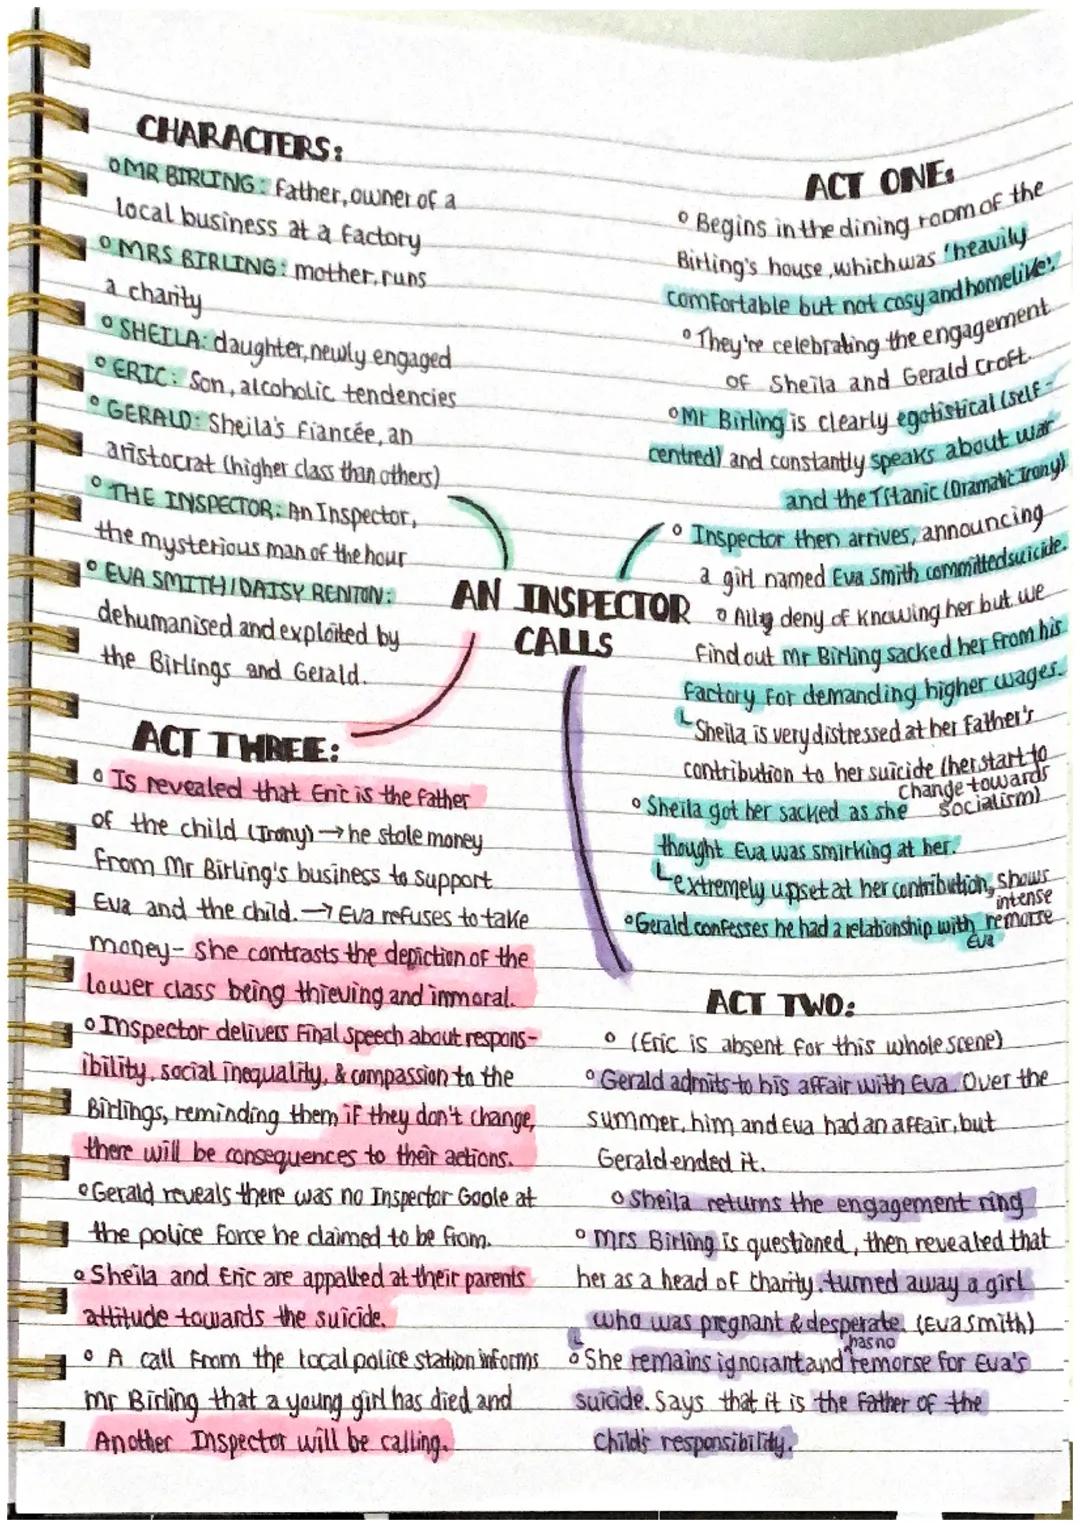 CHARACTERS:
◦ MR BIRLING: Father, owner of a
local business at a factory
◦ MRS BIRLING: mother, runs
a charity
◦ SHEILA: daughter, newly engaged
◦ ERIC: Son, alcoholic tendencies
◦ GERALD: Sheila's Fiancée, an
aristocrat (higher class than others)
◦ THE INSPECTOR: An Inspector,
the mysterious man of the hour
◦ EVA SMITH/DAISY RENTON:
dehumanised and exploited by
the Birlings and Gerald.
AN INSPECTOR
CALLS
ACT ONE:
◦ Begins in the dining room of the
Birling's house, which was 'heavily
comfortable but not cosy and homelike'.
◦ They're celebrating the engagement
of Sheila and Gerald Croft.
◦ Mr Birling is clearly egotistical (self-
centred) and constantly speaks about war
and the Titanic (Dramatic Irony)
◦ Inspector then arrives, announcing
a girl named Eva Smith committed suicide.
◦ All deny of knowing her but we
find out Mr Birling sacked her from his
factory for demanding higher wages.
Sheila is very distressed at her father's
contribution to her suicide (her start to
change towards
socialism)
◦ Sheila got her sacked as she
thought Eva was smirking at her.
extremely upset at her contribution, shows
intense
remorse
◦ Gerald confesses he had a relationship with
Eva
ACT TWO:
◦ (Eric is absent for this whole scene)
◦ Gerald admits to his affair with Eva. Over the
summer, him and Eva had an affair, but
Gerald ended it.
◦ Sheila returns the engagement ring
◦ Mrs Birling is questioned, then revealed that
her as a head of charity, turned away a girl
who was pregnant & desperate. (Eva Smith)
has no
◦ She remains ignorant and remorse for Eva's
suicide. Says that it is the Father of the
Child's responsibility.
ACT THREE:
◦ Is revealed that Eric is the father
of the child (Irony) → he stole money
from Mr Birling's business to support
Eva and the child. → Eva refuses to take
money- She contrasts the depiction of the
lower class being thieving and immoral.
◦ Inspector delivers Final Speech about respons-
ibility, social inequality, & compassion to the
Birlings, reminding them if they don't change,
there will be consequences to their actions.
◦ Gerald reveals there was no Inspector Goole at
the police force he claimed to be from.
◦ Sheila and Eric are appalled at their parents
attitude towards the suicide.
◦ A call from the local police station informs
Mr Birling that a young girl has died and
Another Inspector will be calling.